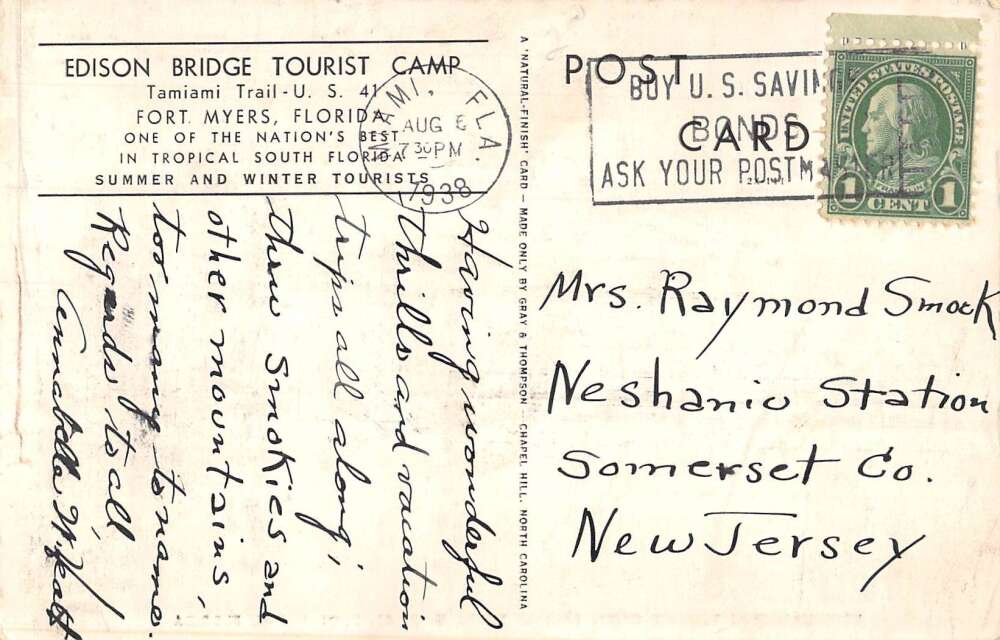 EDISON BRIDGE TOURIST CAMP
Tamiami Trail - U. S. 41
FORT MYERS, FLORIDA
ONE OF THE NATION'S BEST
IN TROPICAL SOUTH FLORIDA
SUMMER AND WINTER TOURISTS
MIAMI, FLA.
AUG 6
7 30 PM
1938
Having wonderful
thrills and vacation
trips all along;
thru Smokies and
other mountains,
too many to name.
Regards to all,
Annabelle W.
A 'NATURAL-FINISH' CARD — MADE ONLY BY GRAY & THOMPSON — CHAPEL HILL, NORTH CAROLINA
POST
CARD
BUY U. S. SAVINGS
BONDS
ASK YOUR POSTMASTER
UNITED STATES POSTAGE
FRANKLIN
1 CENT 1
Mrs. Raymond Smock
Neshanic Station
Somerset Co.
New Jersey